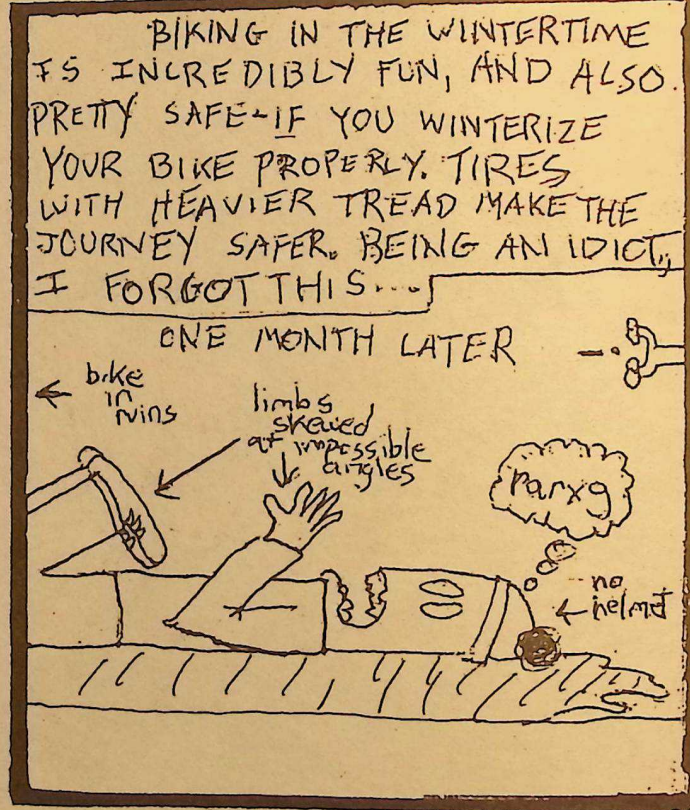 BIKING IN THE WINTERTIME
IS INCREDIBLY FUN, AND ALSO
PRETTY SAFE-IF YOU WINTERIZE
YOUR BIKE PROPERLY. TIRES
WITH HEAVIER TREAD MAKE THE
JOURNEY SAFER. BEING AN IDIOT,
I FORGOT THIS....
ONE MONTH LATER
bike
in
ruins
limbs
skewed
at impossible
angles
rarxg
no
helmet